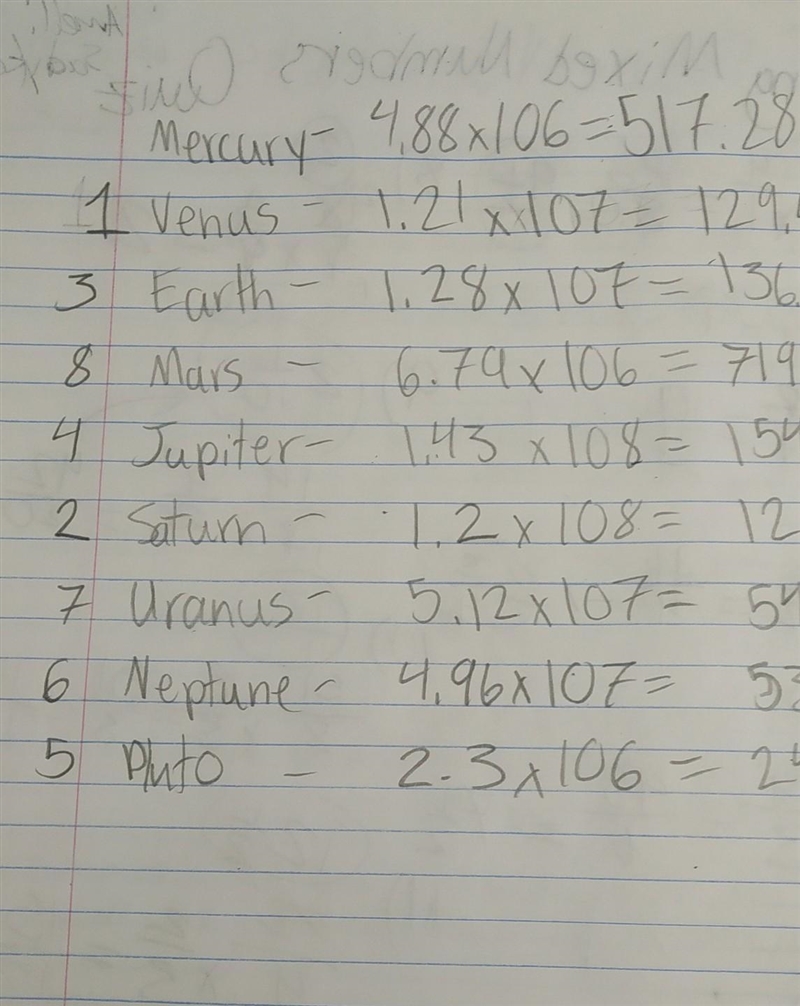 Mercury- 4.88x106=517.28
1 Venus - 1.21xx107= 129.
3 Earth - 1.28x107= 136.
8 Mars - 6.79x106= 719
4 Jupiter- 1.43x108= 154
2 Saturn - 1.2x108= 12
7 Uranus- 5.12x107= 54
6 Neptune - 4.96x107= 53
5 Pluto - 2.3x106= 24